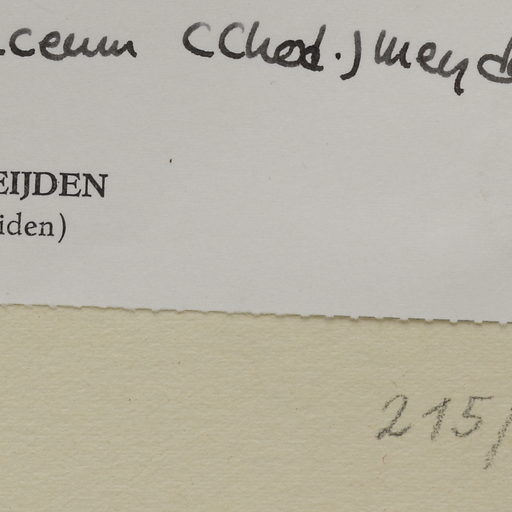 ceum (Chod.) Meyd
EIJDEN
iden)
215/